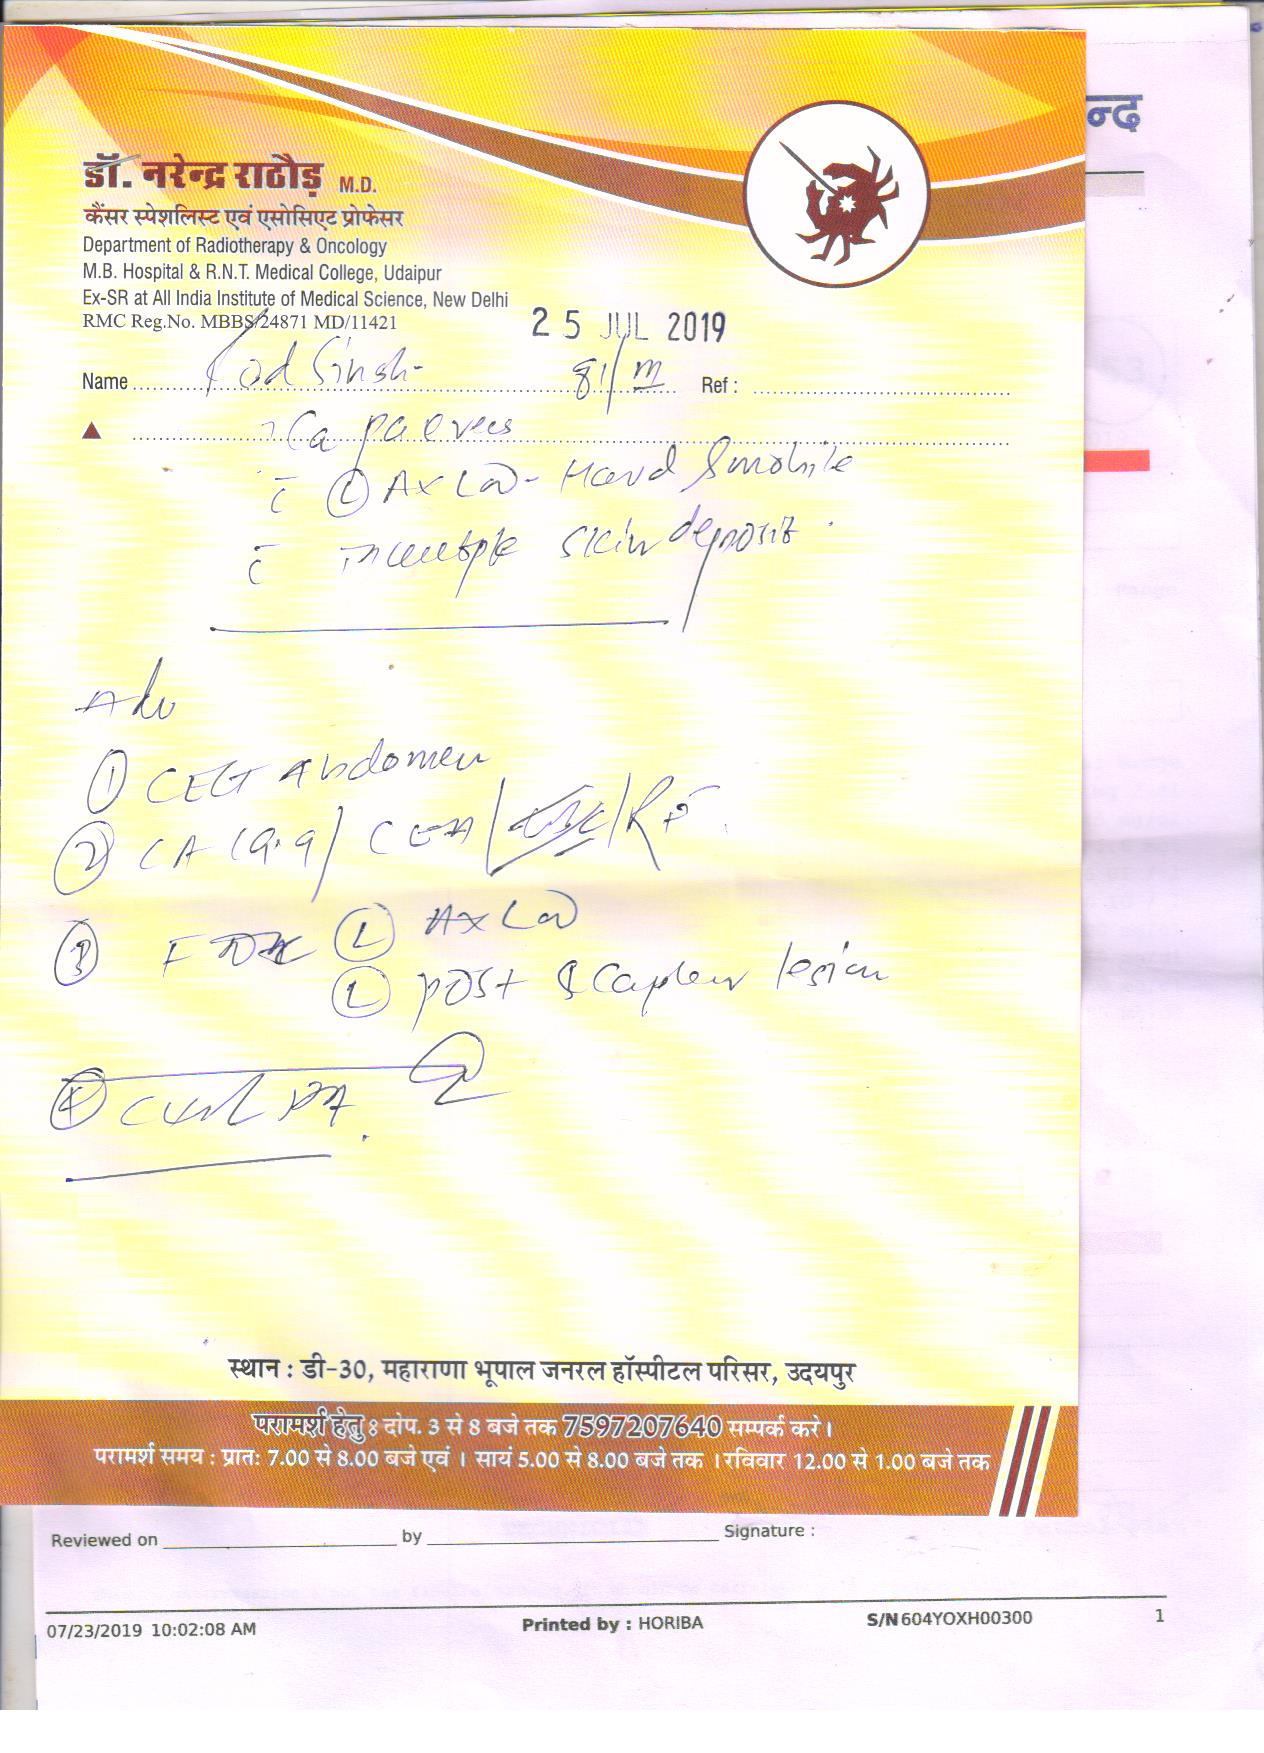 न्द
डॉ. नरेन्द्र राठौड़ M.D.
कैंसर स्पेशलिस्ट एवं एसोसिएट प्रोफेसर
Department of Radiotherapy & Oncology
M.B. Hospital & R.N.T. Medical College, Udaipur
Ex-SR at All India Institute of Medical Science, New Delhi
RMC Reg.No. MBBS/24871 MD/11421
25 JUL 2019
Name Singh 81/m Ref :
Ca
c̄ (L) Ax - Hard & mobile
c̄ multiple skin deposit
Adv
① CECT Abdomen
② CA 19.9 / CEA / RF
③ (L) Ax
(L) post scapular lesion
④ PA
स्थान : डी-30, महाराणा भूपाल जनरल हॉस्पीटल परिसर, उदयपुर
परामर्श हेतु : दोप. 3 से 8 बजे तक 7597207640 सम्पर्क करे।
परामर्श समय : प्रातः 7.00 से 8.00 बजे एवं । सायं 5.00 से 8.00 बजे तक । रविवार 12.00 से 1.00 बजे तक
Reviewed on by Signature :
07/23/2019 10:02:08 AM Printed by : HORIBA S/N 604YOXH00300 1